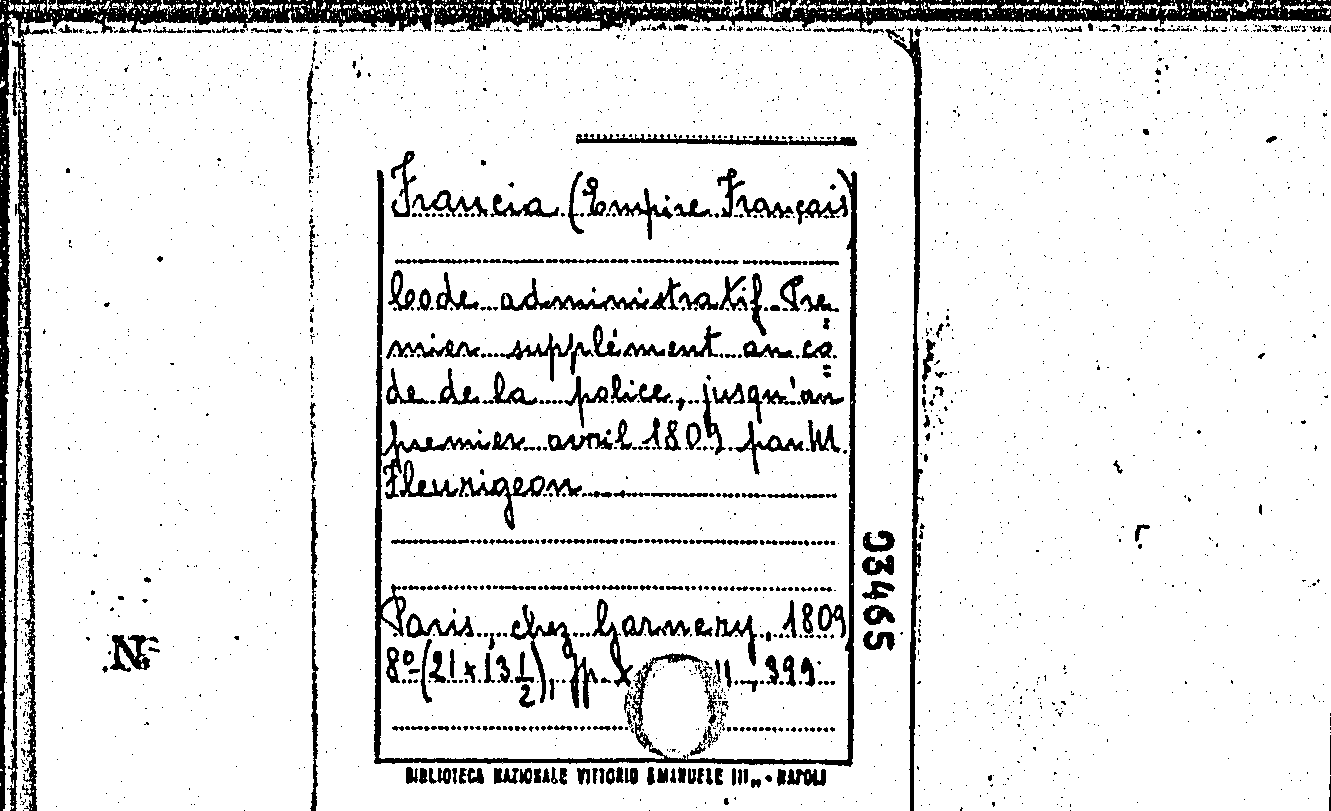 Francia (Empire Français)
Code administratif Pre=
mier supplément au co=
de de la police, jusqu'au
premier avril 1809 par M.
Fleurigeon
Paris, chez Garnery, 1809
8º (21 x 13 1/2), pp. 399
BIBLIOTECA NAZIONALE VITTORIO EMANUELE III„ - NAPOLI
93465
N